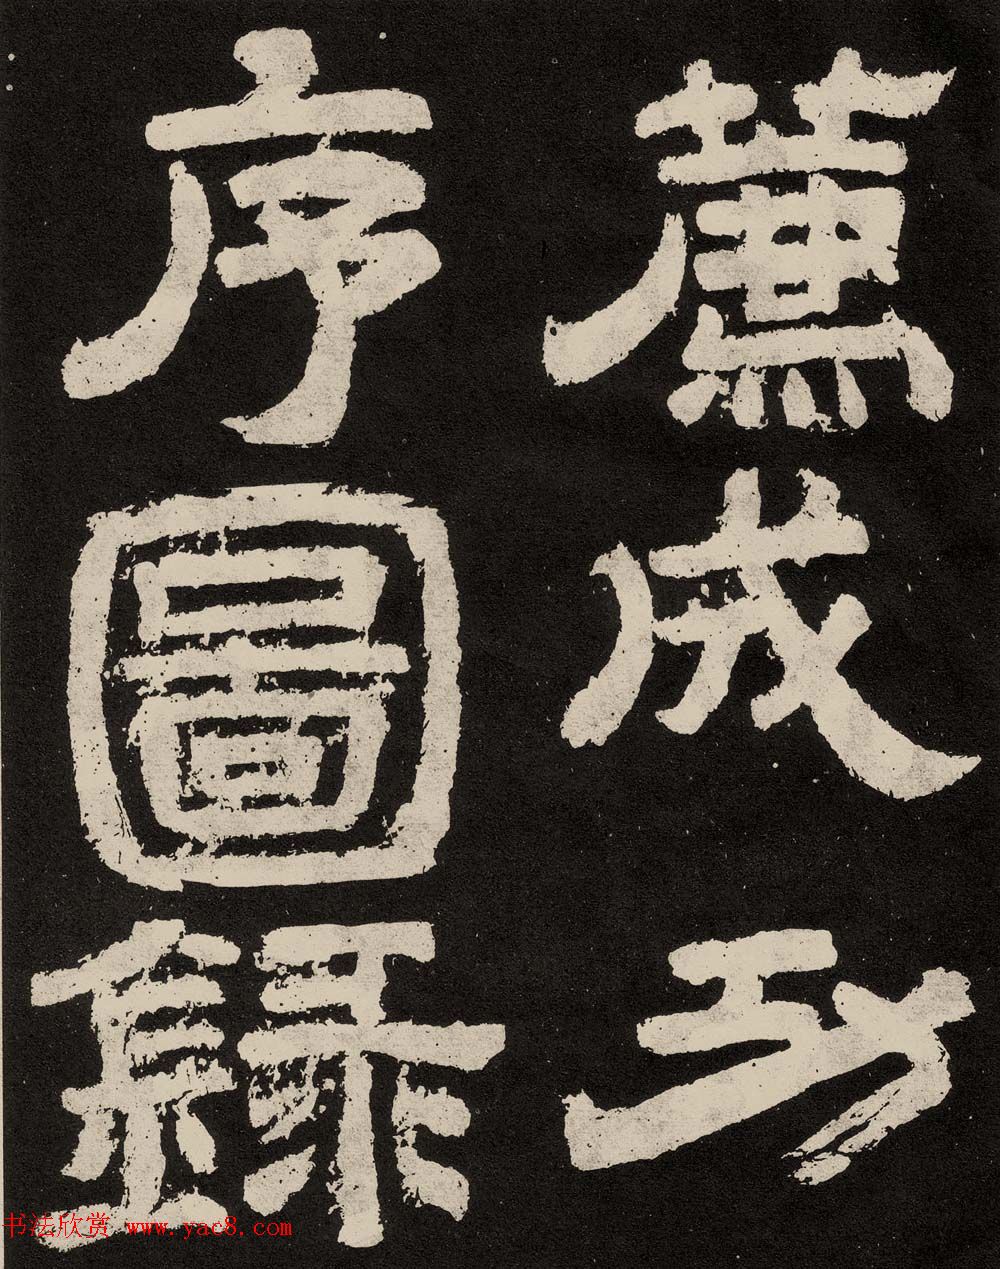 薦成功
序圖録
书法欣赏 www.yac8.com